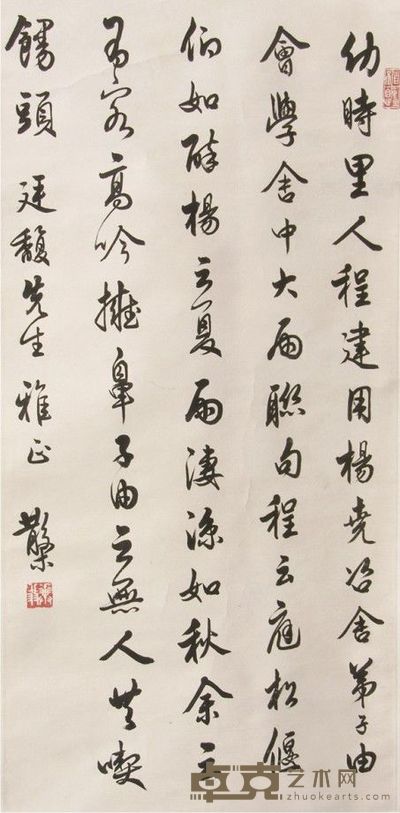 幼時里人程建用楊堯咨舍弟子由
會學舍中大雨聯句程云庭松偃
仰如醉楊云夏雨淒涼如秋余云
有客高吟擁鼻子由云無人共喫
饅頭 廷馥先生雅正
卓克艺术网
zhuokearts.com